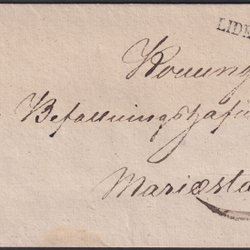 LIDK
Konung
Befallningshafv
Mariesta